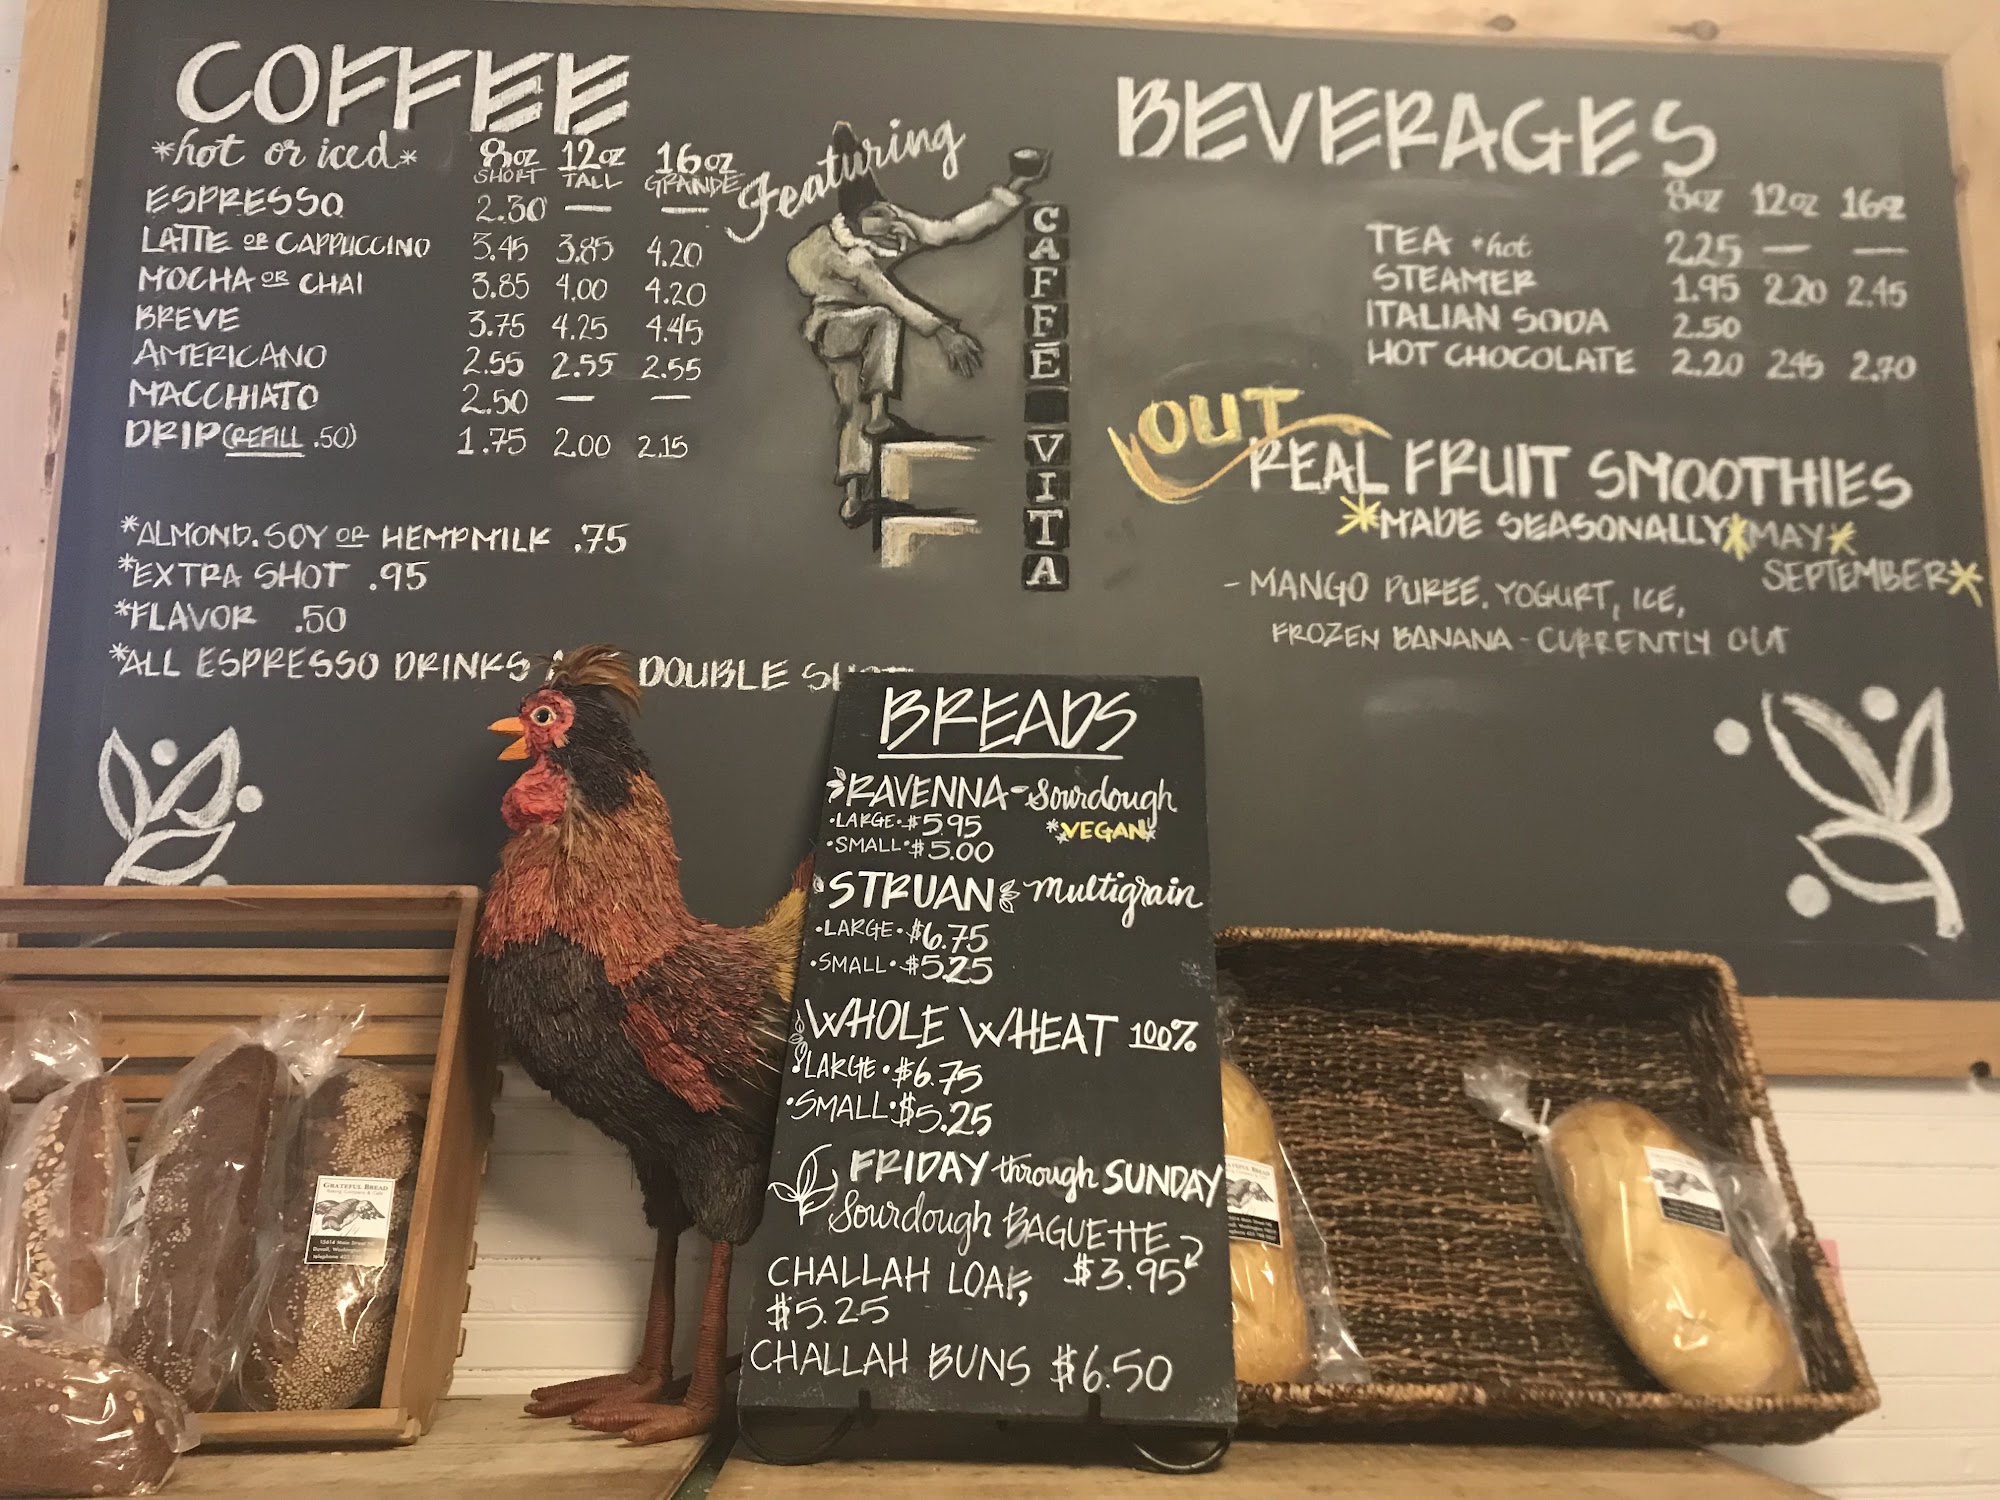 COFFEE
*hot or iced*
8oz 12oz 16oz
SHORT TALL GRANDE
ESPRESSO 2.30 — —
LATTE OR CAPPUCCINO 3.45 3.85 4.20
MOCHA OR CHAI 3.85 4.00 4.20
BREVE 3.75 4.25 4.45
AMERICANO 2.55 2.55 2.55
MACCHIATO 2.50 — —
DRIP (REFILL .50) 1.75 2.00 2.15
*ALMOND. SOY OR HEMPMILK .75
*EXTRA SHOT .95
*FLAVOR .50
*ALL ESPRESSO DRINKS DOUBLE
Featuring
CAFFÉ VITA
BEVERAGES
8oz 12oz 16oz
TEA *hot 2.25 — —
STEAMER 1.95 2.20 2.45
ITALIAN SODA 2.50
HOT CHOCOLATE 2.20 2.45 2.70
OUT
REAL FRUIT SMOOTHIES
*MADE SEASONALLY* MAY*
SEPTEMBER*
- MANGO PUREE. YOGURT, ICE,
FROZEN BANANA - CURRENTLY OUT
BREADS
RAVENNA - Sourdough
• LARGE • $5.95 *VEGAN*
• SMALL • $5.00
STRUAN Multigrain
• LARGE • $6.75
• SMALL • $5.25
WHOLE WHEAT 100%
• LARGE • $6.75
• SMALL • $5.25
FRIDAY through SUNDAY
Sourdough BAGUETTE
CHALLAH LOAF, $3.95
$5.25
CHALLAH BUNS $6.50
GRATEFUL BREAD
Baking Company & Café
15614 Main Street NE
Duvall, Washington
telephone 425